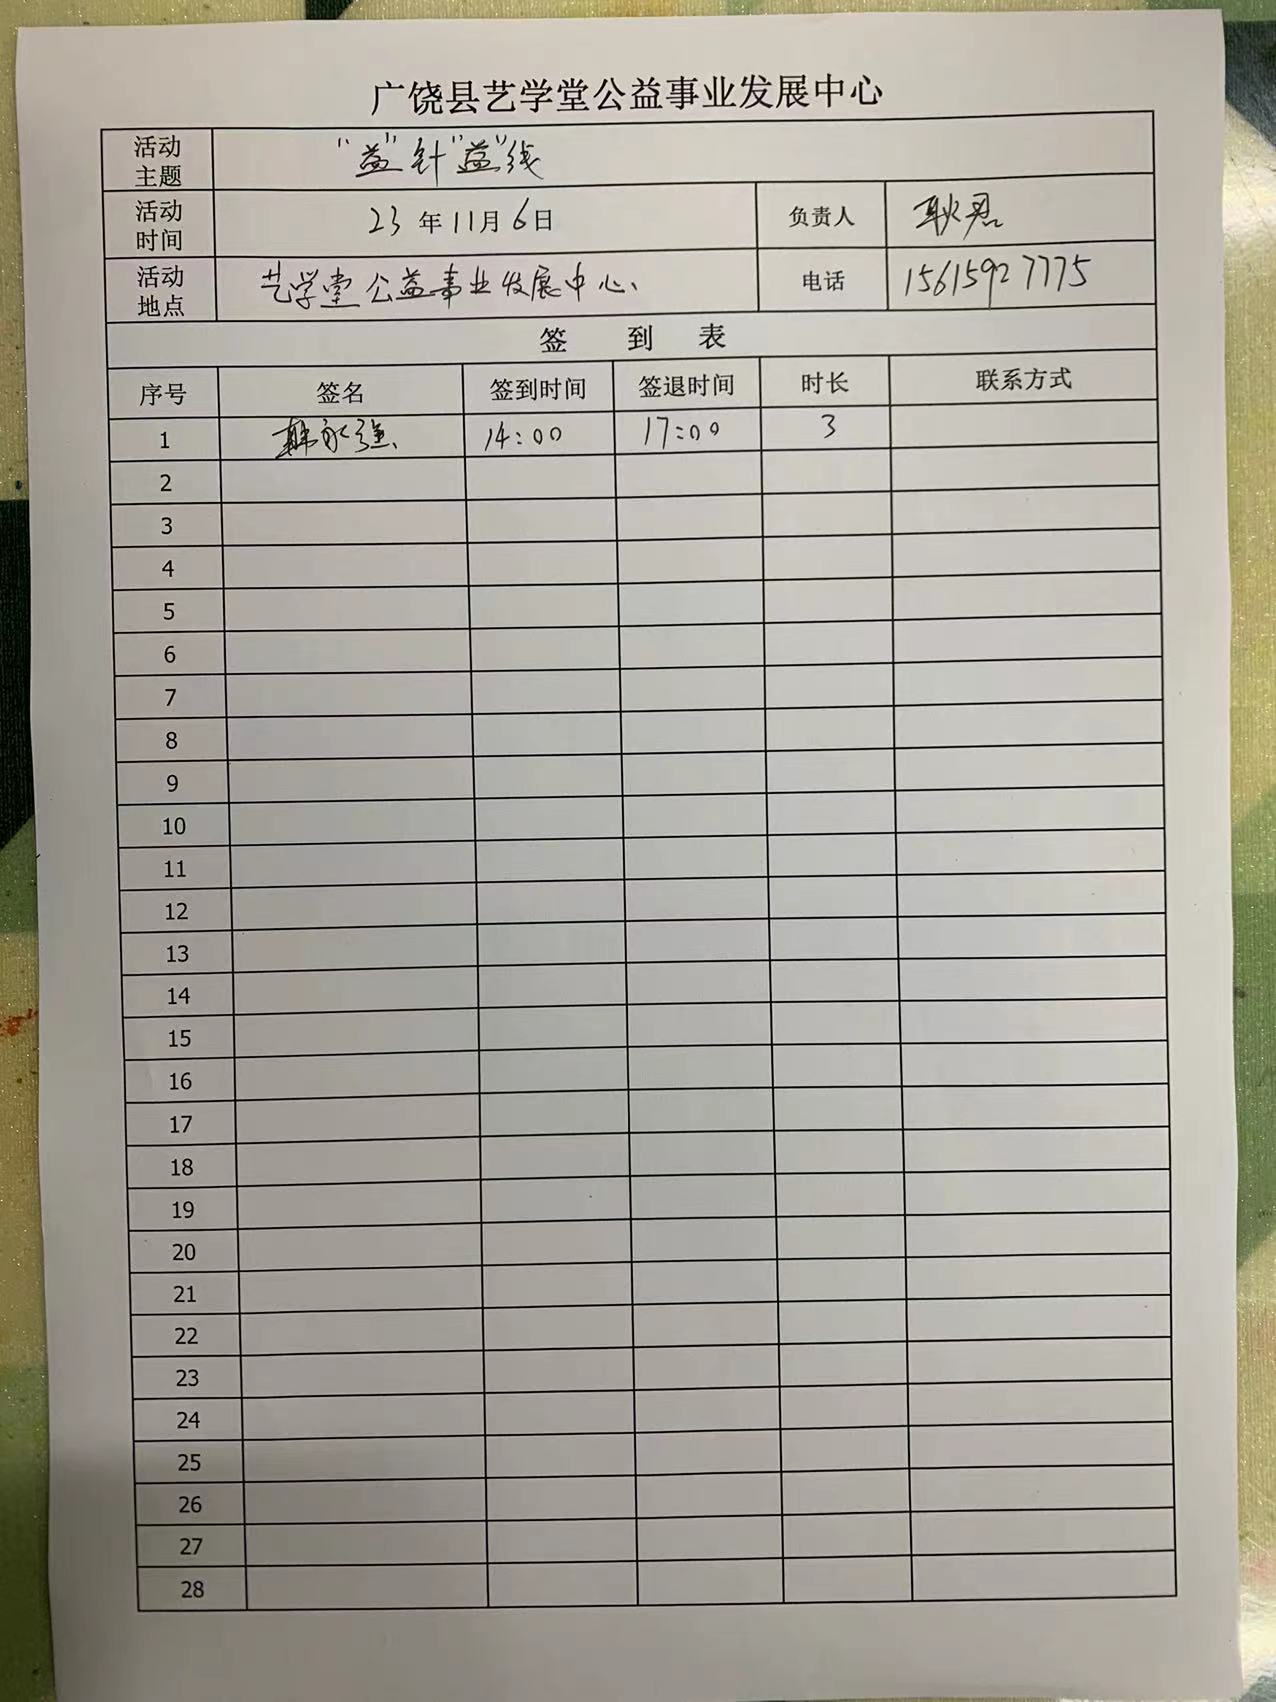 广饶县艺学堂公益事业发展中心
活动主题 “益”针“益”线
活动时间 23年11月6日 负责人 耿君
活动地点 艺学堂公益事业发展中心 电话 15615927775
签 到 表
序号 签名 签到时间 签退时间 时长 联系方式
1 韩永强 14:00 17:00 3
2
3
4
5
6
7
8
9
10
11
12
13
14
15
16
17
18
19
20
21
22
23
24
25
26
27
28